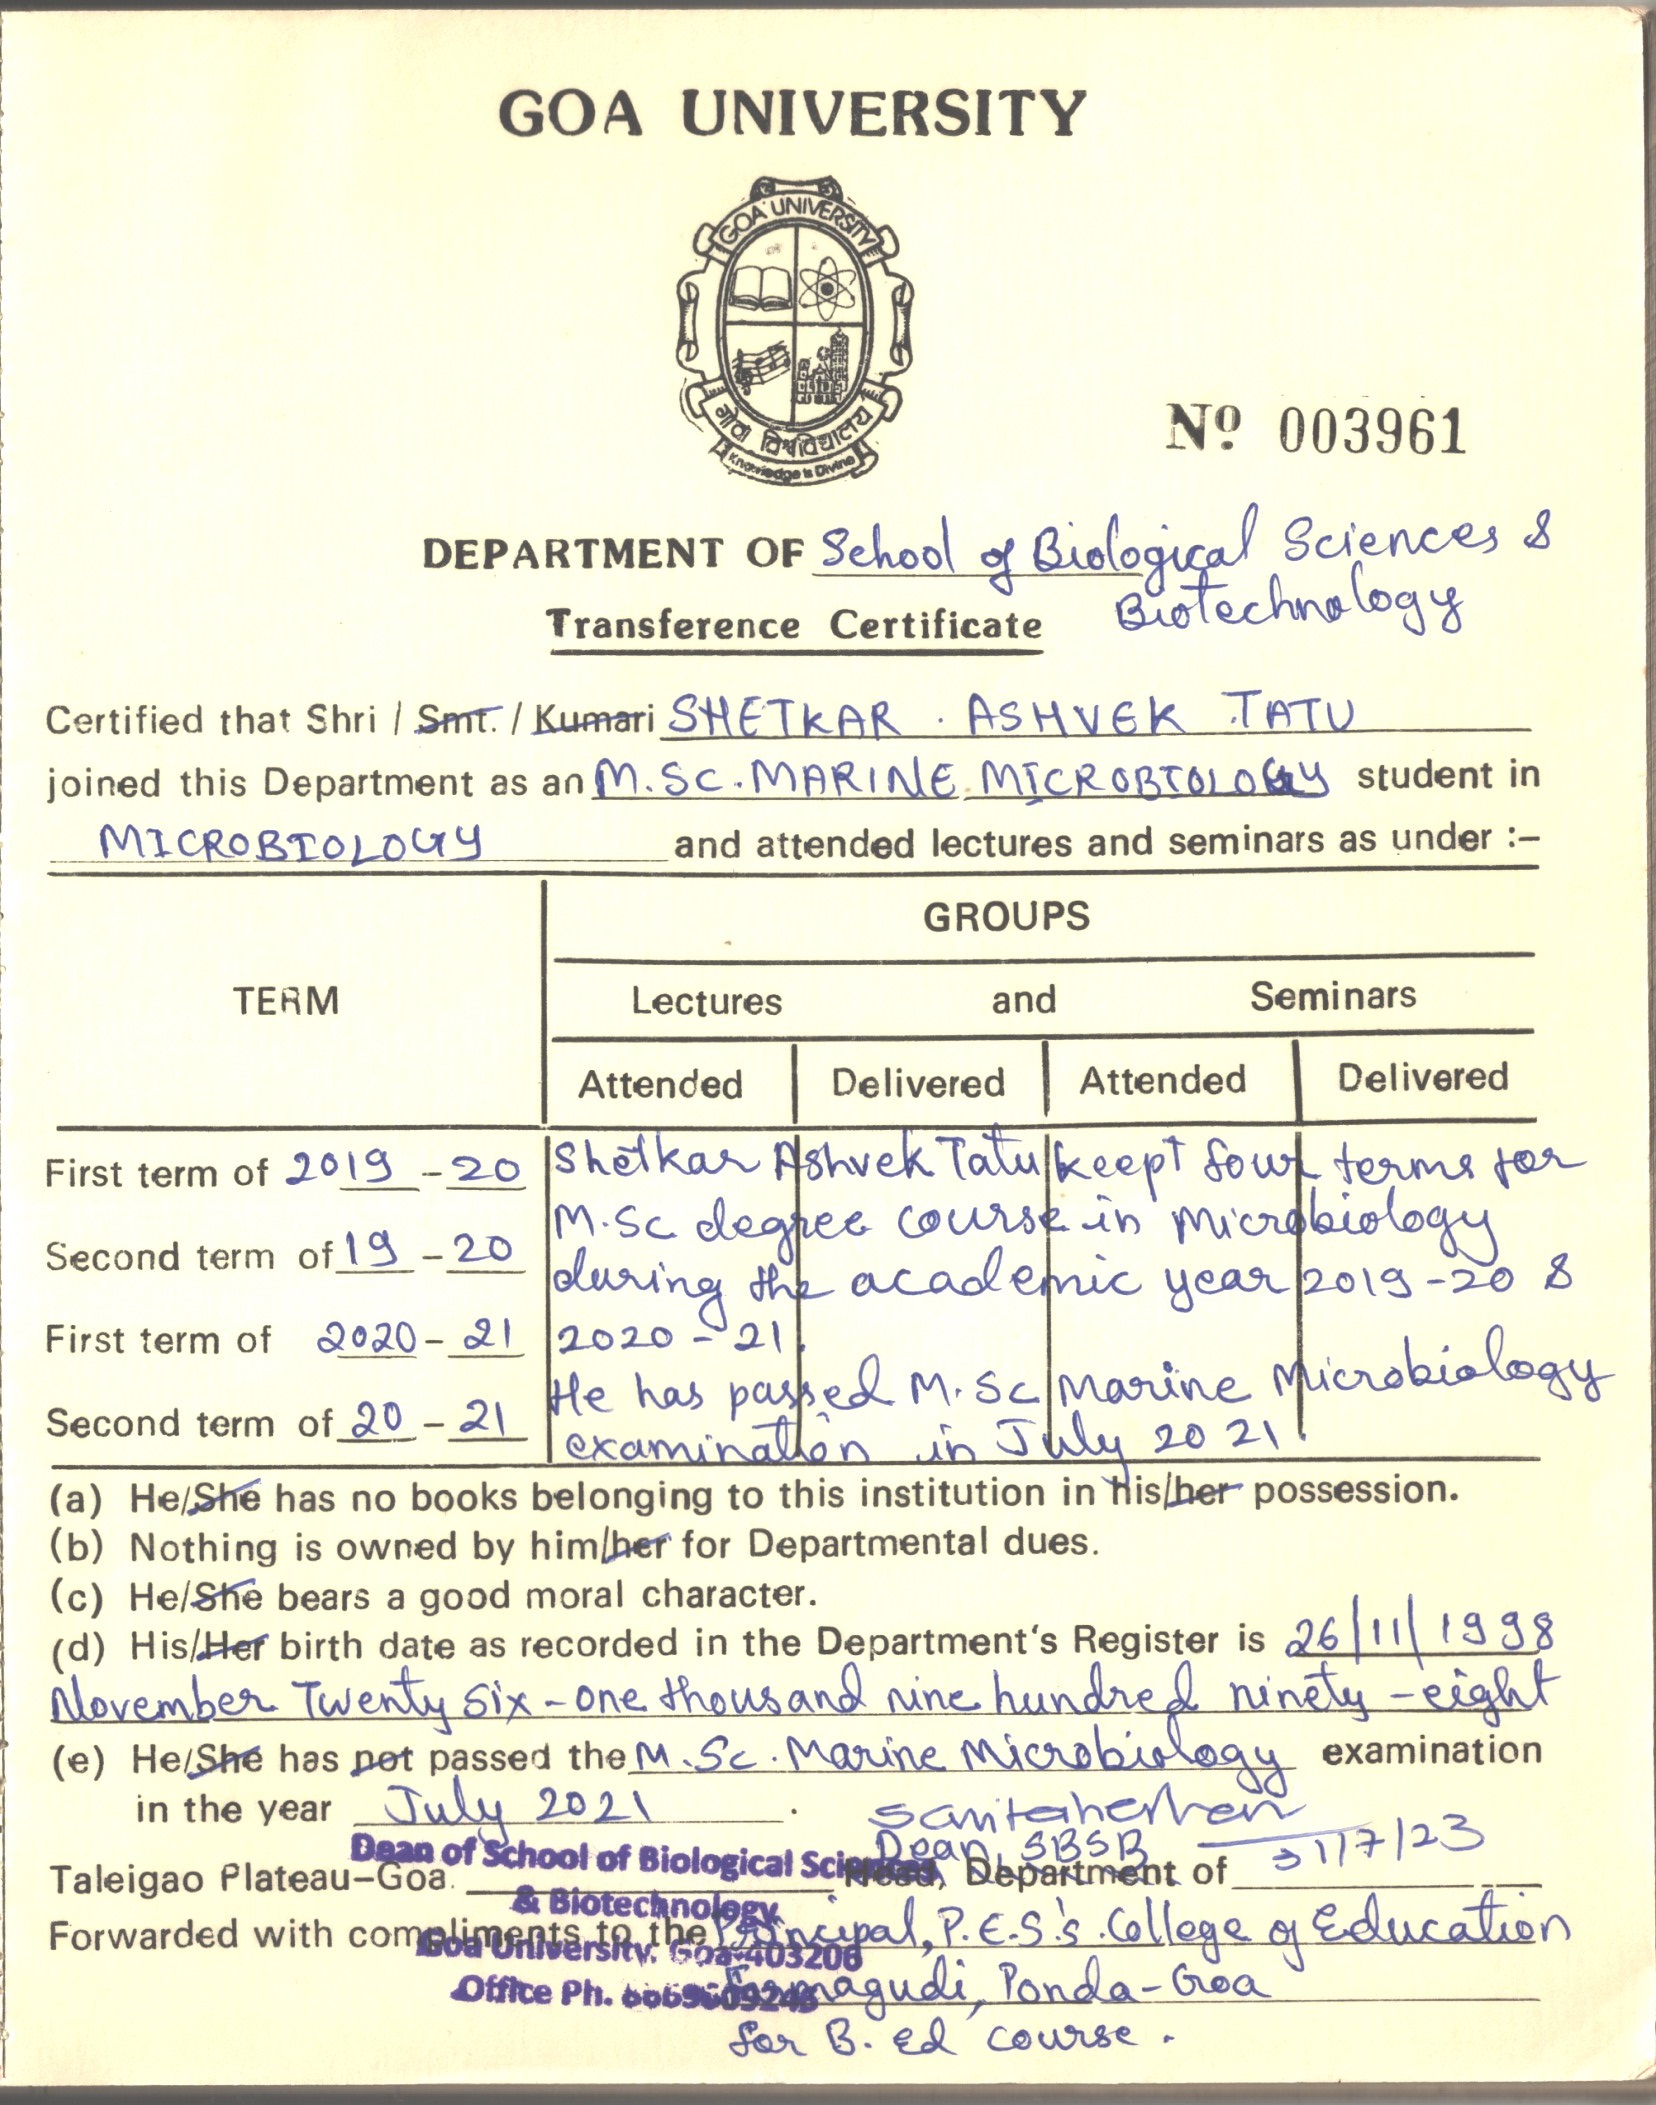 GOA UNIVERSITY
GOA UNIVERSITY
गोंय विश्वविद्यालय
Knowledge is Divine
Nº 003961
DEPARTMENT OF School of Biological Sciences &
Biotechnology
Transference Certificate
Certified that Shri / Smt. / Kumari SHETKAR . ASHVEK TATU
joined this Department as an M.SC. MARINE MICROBIOLOGY student in
MICROBIOLOGY and attended lectures and seminars as under :–
GROUPS
TERM Lectures and Seminars
Attended Delivered Attended Delivered
First term of 2019 – 20 Shetkar Ashvek Tatu keept four terms for
M.Sc degree course in Microbiology
Second term of 19 – 20 during the academic year 2019-20 &
First term of 2020 – 21 2020 – 21.
He has passed M.Sc Marine Microbiology
Second term of 20 – 21 examination in July 2021.
(a) He/She has no books belonging to this institution in his/her possession.
(b) Nothing is owned by him/her for Departmental dues.
(c) He/She bears a good moral character.
(d) His/Her birth date as recorded in the Department's Register is 26/11/1998
November Twenty six – one thousand nine hundred ninety – eight
(e) He/She has not passed the M.Sc. Marine Microbiology examination
in the year July 2021 .
Dean, SBSB 31/7/23
Dean of School of Biological Sciences
Taleigao Plateau–Goa. Head, Department of
& Biotechnology
Forwarded with compliments to the Principal, P.E.S's. College of Education
Goa University. Goa-403206
Farmagudi, Ponda-Goa
Office Ph.
for B. Ed course .